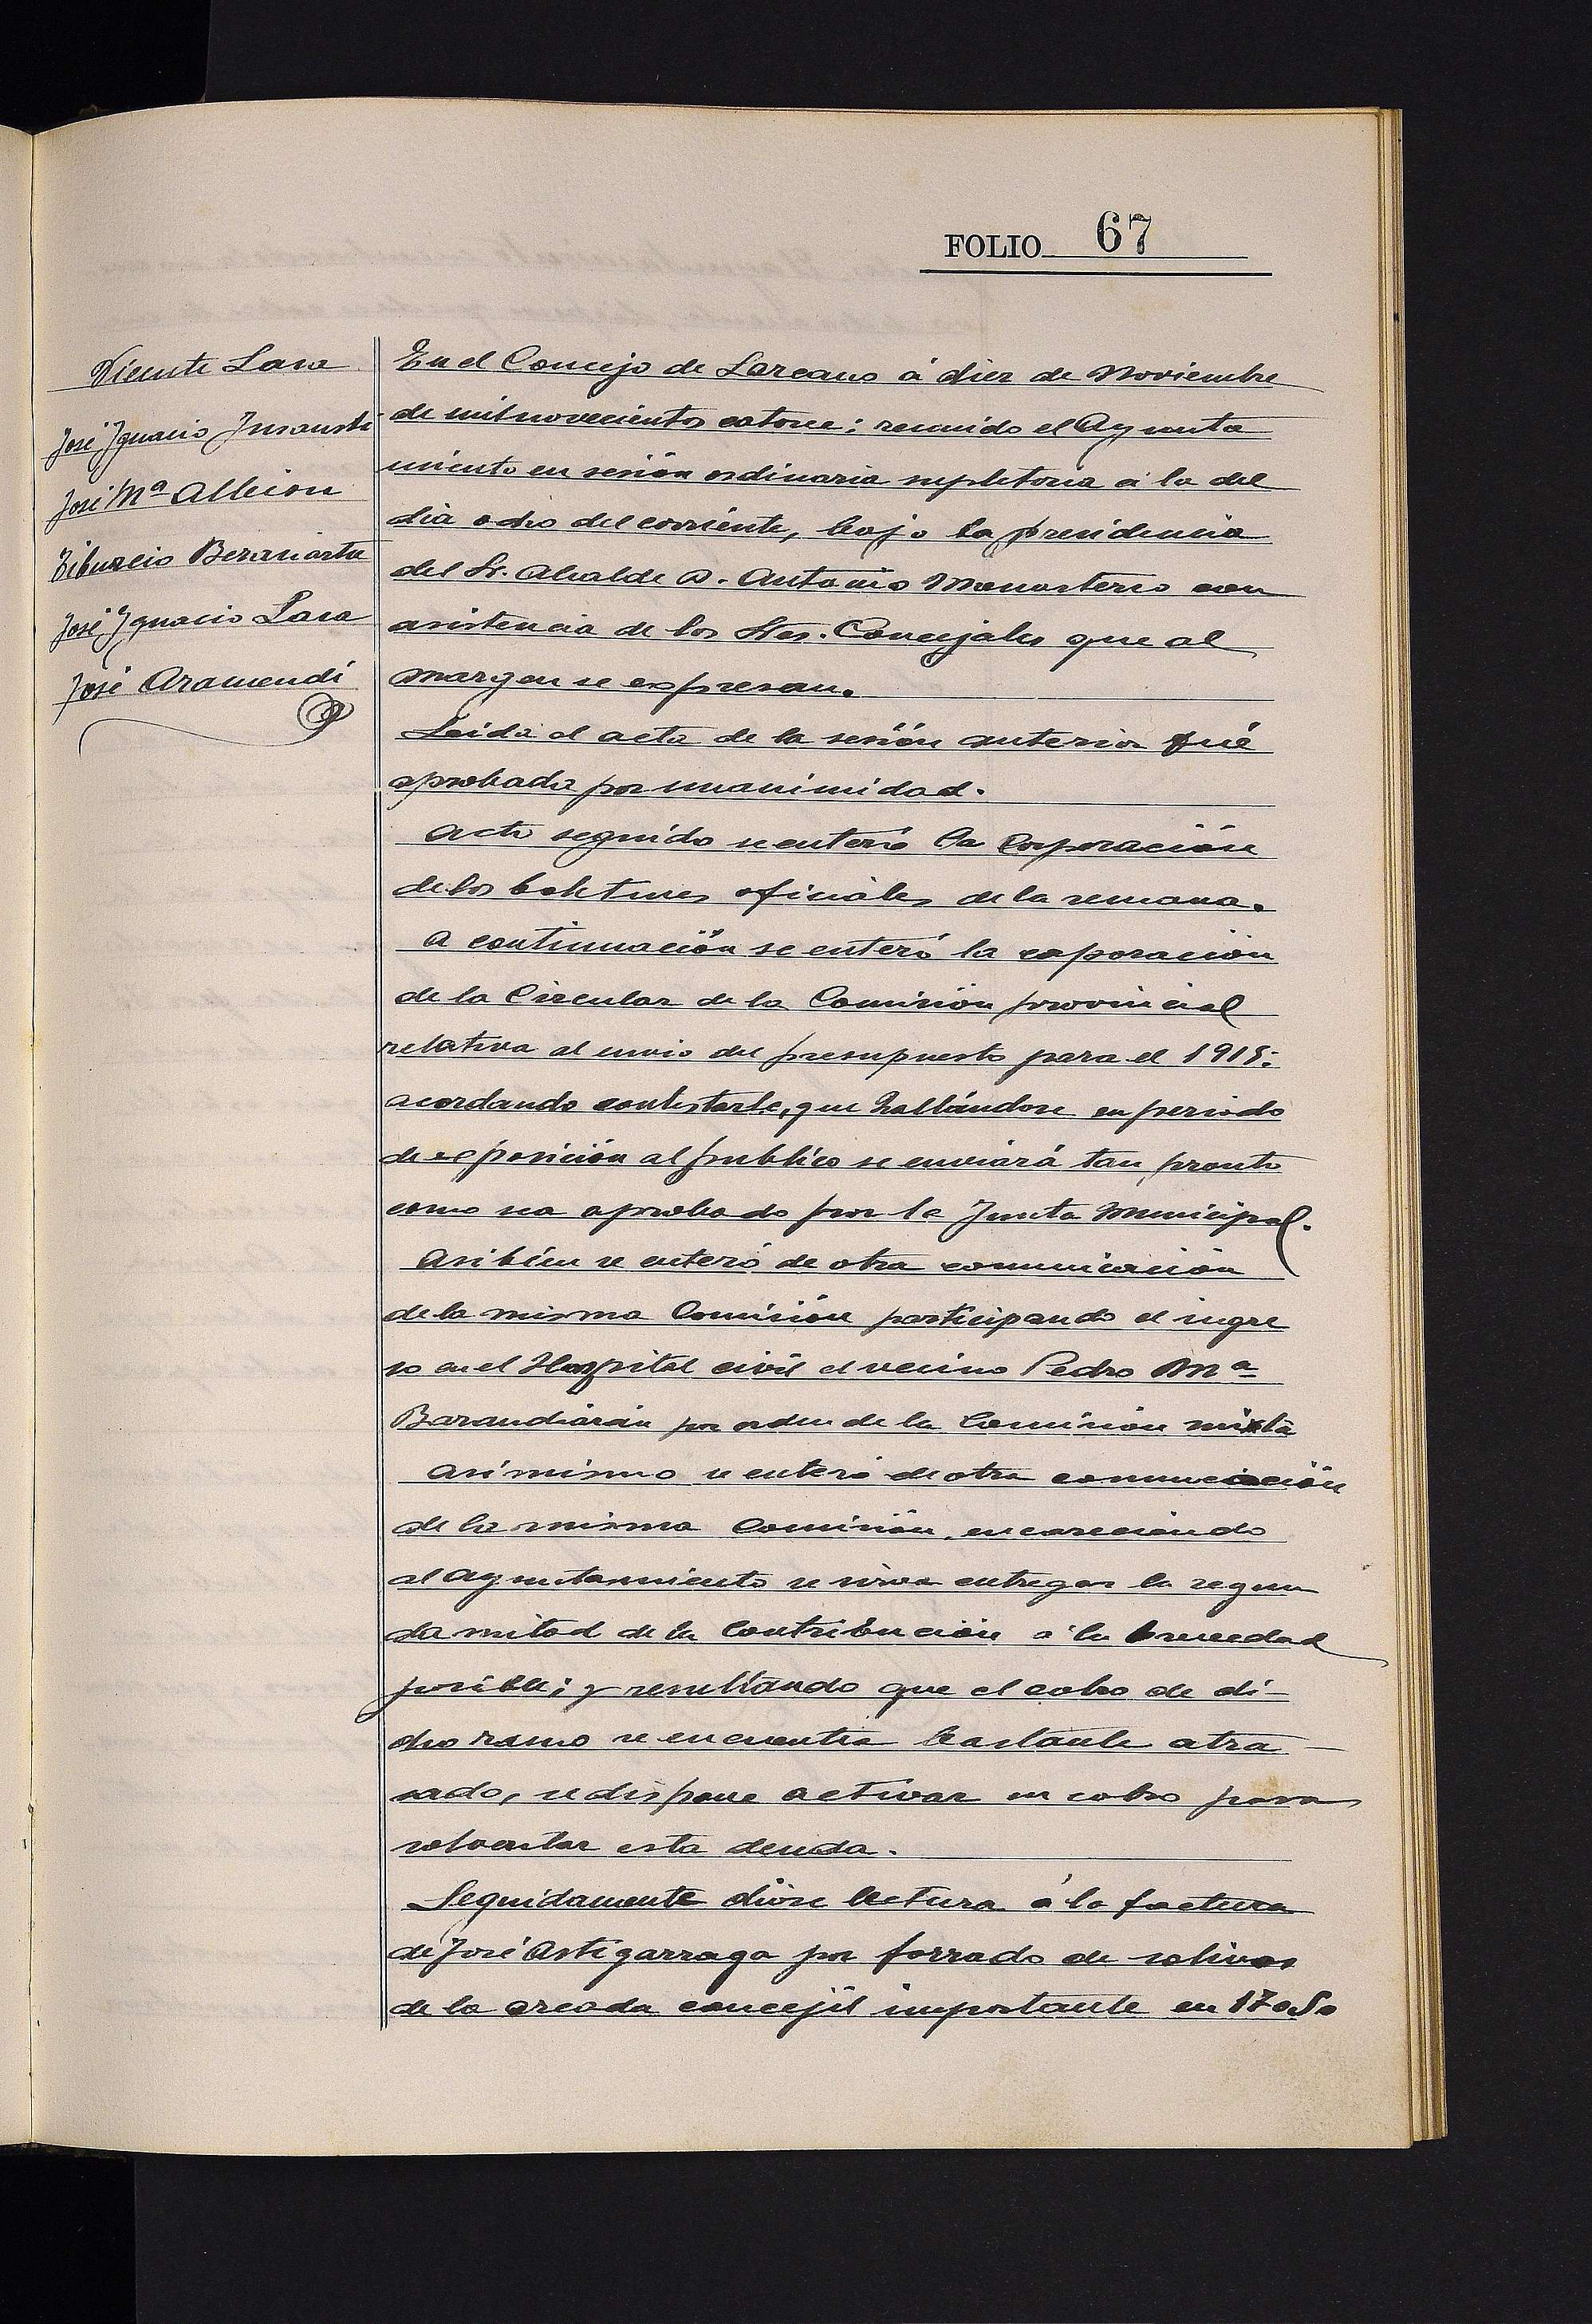 FOLIO 67
Vicente Lasa
José Ignacio Insausti
José Mª Albisu
Tiburcio Beraciartu
José Ignacio Lasa
José Aramendi
En el Concejo de Lazcano á diez de Noviembre
de mil novecientos catorce; reunido el Ayunta
miento en sesión ordinaria supletoria á la del
día ocho del corriente, bajo la presidencia
del Sr. Alcalde D. Antonio Monasterio con
asistencia de los Sres. Concejales que al
margen se expresan.
Leida el acta de la sesión anterior fué
aprobada por unanimidad.
Acto seguido se enteró la Corporación
de los boletines oficiales de la semana.
A continuación se enteró la coporación
de la Circular de la Comisión provincial
relativa al envio del presupuesto para el 1915;
acordando contestarle, que hallándose en periodo
de exposición al público se enviará tan pronto
como sea aprobado por la Junta Municipal.
Asi bién se enteró de otra comunicación
de la misma Comisión participando el ingre
so en el Hospital civil el vecino Pedro Mª
Barandiarán por orden de la Comisión mixta
Asi mismo se enteró de otra comunicación
de la misma Comisión, encareciendo
al Ayuntamiento se sirva entregar la segun
da mitad de la Contribución á la brevedad
posible; y resultando que el cobro de di-
cho ramo se encuentra bastante atra-
sado, se dispone activar su cobro para
solventar esta deuda.
Seguidamente dióse lectura á la factura
de José Astigarraga por forrado de solivos
de la arcada concejil importante en 170.50